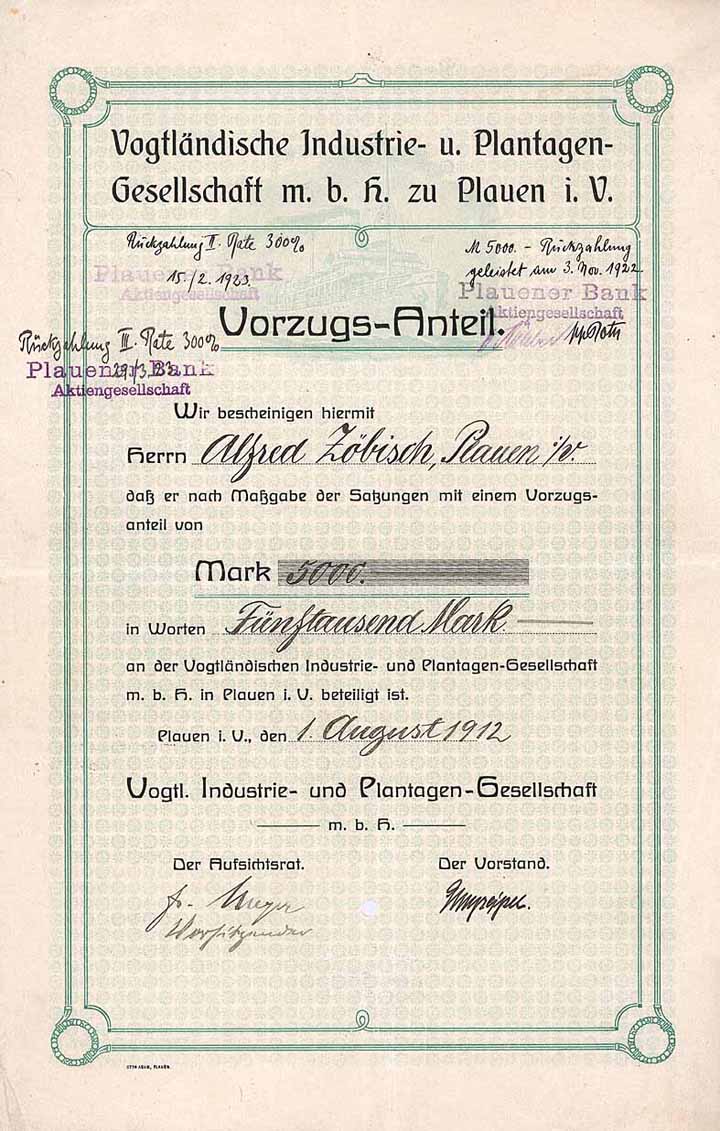 Vogtländische Industrie- u. Plantagen-
Gesellschaft m. b. H. zu Plauen i. V.
Rückzahlung II. Rate 300%
15./2. 1923.
Plauener Bank
Aktiengesellschaft
M 5000.- Rückzahlung
geleistet am 3. Nov. 1922
Plauener Bank
Aktiengesellschaft
Vorzugs-Anteil.
Rückzahlung III. Rate 300%
29/3. 23.
Plauener Bank
Aktiengesellschaft
Wir bescheinigen hiermit
Herrn Alfred Zöbisch, Plauen i/V.
daß er nach Maßgabe der Satzungen mit einem Vorzugs-
anteil von
Mark 5000.
in Worten Fünftausend Mark.
an der Vogtländischen Industrie- und Plantagen-Gesellschaft
m. b. H. in Plauen i. V. beteiligt ist.
Plauen i. V., den 1. August 1912
Vogtl. Industrie- und Plantagen-Gesellschaft
m. b. H.
Der Aufsichtsrat.
Der Vorstand.
Fr. Meyer
Vorsitzender
OTTO ADAM, PLAUEN.